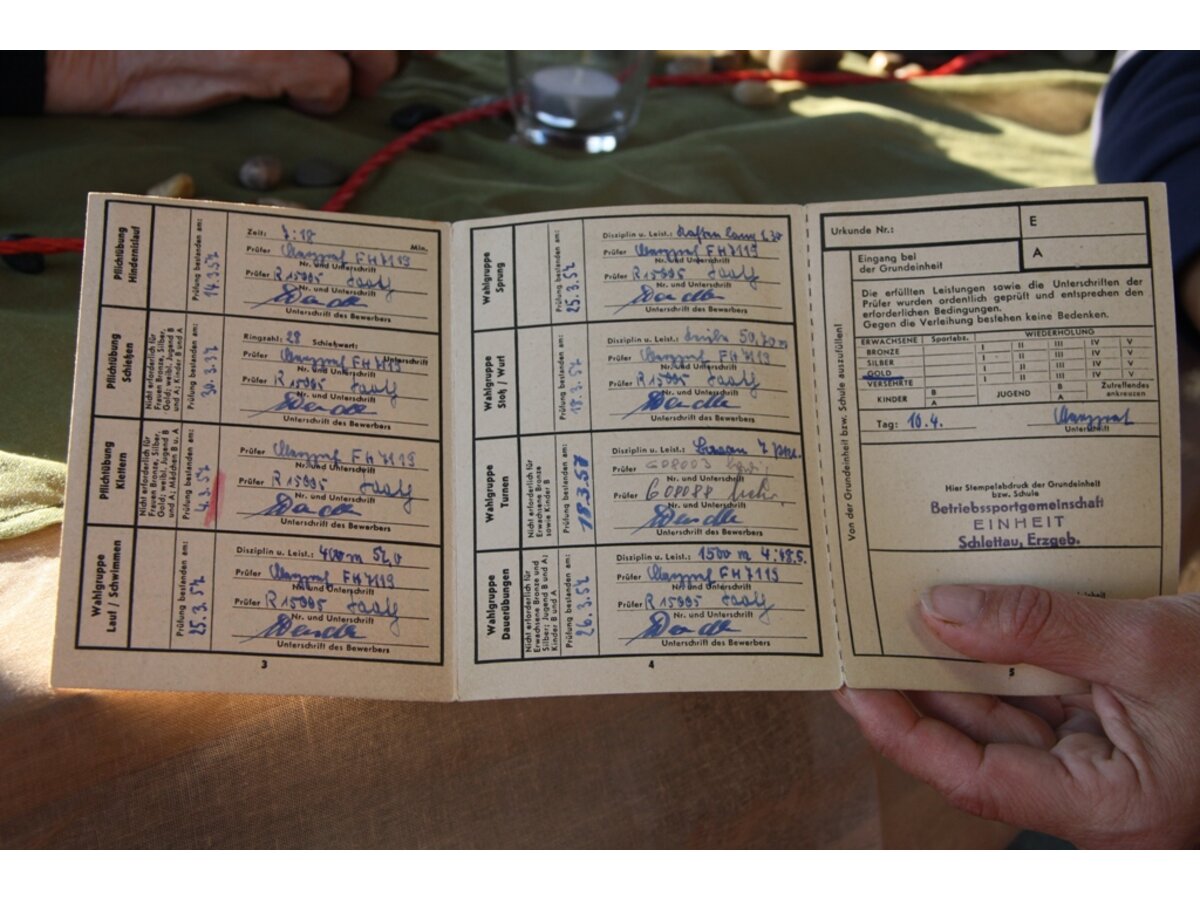 Pflichtübung
Hindernislauf
Prüfung bestanden am:
14.3.57
Zeit: 7:18 Min.
Prüfer FH7119
Nr. und Unterschrift
Prüfer R 15005
Nr. und Unterschrift
Unterschrift des Bewerbers
Pflichtübung
Schießen
Nicht erforderlich für
Frauen Bronze, Silber,
Gold; weibl. Jugend B
und A; Kinder B und A
Prüfung bestanden am:
30.3.57
Ringzahl: 28 Schießwart: Unterschrift
Prüfer FH7119
Nr. und Unterschrift
Prüfer R 15005
Nr. und Unterschrift
Unterschrift des Bewerbers
Pflichtübung
Klettern
Nicht erforderlich für
Frauen Bronze, Silber,
Gold; weibl. Jugend B
und A; Mädchen B u. A
Prüfung bestanden am:
4.3.57
Prüfer FH7119
Nr. und Unterschrift
Prüfer R 15005
Nr. und Unterschrift
Unterschrift des Bewerbers
Wahlgruppe
Lauf / Schwimmen
Prüfung bestanden am:
25.3.57
Disziplin u. Leist.: 400m 52,0
Prüfer FH7119
Nr. und Unterschrift
Prüfer R 15005
Nr. und Unterschrift
Unterschrift des Bewerbers
3
Wahlgruppe
Sprung
Prüfung bestanden am:
25.3.57
Disziplin u. Leist.:
Prüfer FH7119
Nr. und Unterschrift
Prüfer R 15005
Nr. und Unterschrift
Unterschrift des Bewerbers
Wahlgruppe
Stoß / Wurf
Prüfung bestanden am:
18.3.57
Disziplin u. Leist.: 50,70m
Prüfer FH7119
Nr. und Unterschrift
Prüfer R 15005
Nr. und Unterschrift
Unterschrift des Bewerbers
Wahlgruppe
Turnen
Nicht erforderlich für
Erwachsene Bronze
sowie Kinder B
Prüfung bestanden am:
18.3.57
Disziplin u. Leist.:
Prüfer G08003
Nr. und Unterschrift
Prüfer G08088
Nr. und Unterschrift
Unterschrift des Bewerbers
Wahlgruppe
Dauerübungen
Nicht erforderlich für
Erwachsene Bronze und
Silber; Jugend B und A;
Kinder B und A
Prüfung bestanden am:
26.3.57
Disziplin u. Leist.: 1500 m 4:48,5.
Prüfer FH7119
Nr. und Unterschrift
Prüfer R 15005
Nr. und Unterschrift
Unterschrift des Bewerbers
4
Von der Grundeinheit bzw. Schule auszufüllen!
Urkunde Nr.:
E
Eingang bei
der Grundeinheit
A
Die erfüllten Leistungen sowie die Unterschriften der
Prüfer wurden ordentlich geprüft und entsprechen den
erforderlichen Bedingungen.
Gegen die Verleihung bestehen keine Bedenken.
ERWACHSENE Sportabz. WIEDERHOLUNG
BRONZE I II III IV V
SILBER I II III IV V
GOLD I II III IV V
VERSEHRTE
KINDER B A JUGEND B A Zutreffendes ankreuzen
Tag: 10.4.
Unterschrift
Hier Stempelabdruck der Grundeinheit
bzw. Schule
Betriebssportgemeinschaft
EINHEIT
Schlettau, Erzgeb.
5